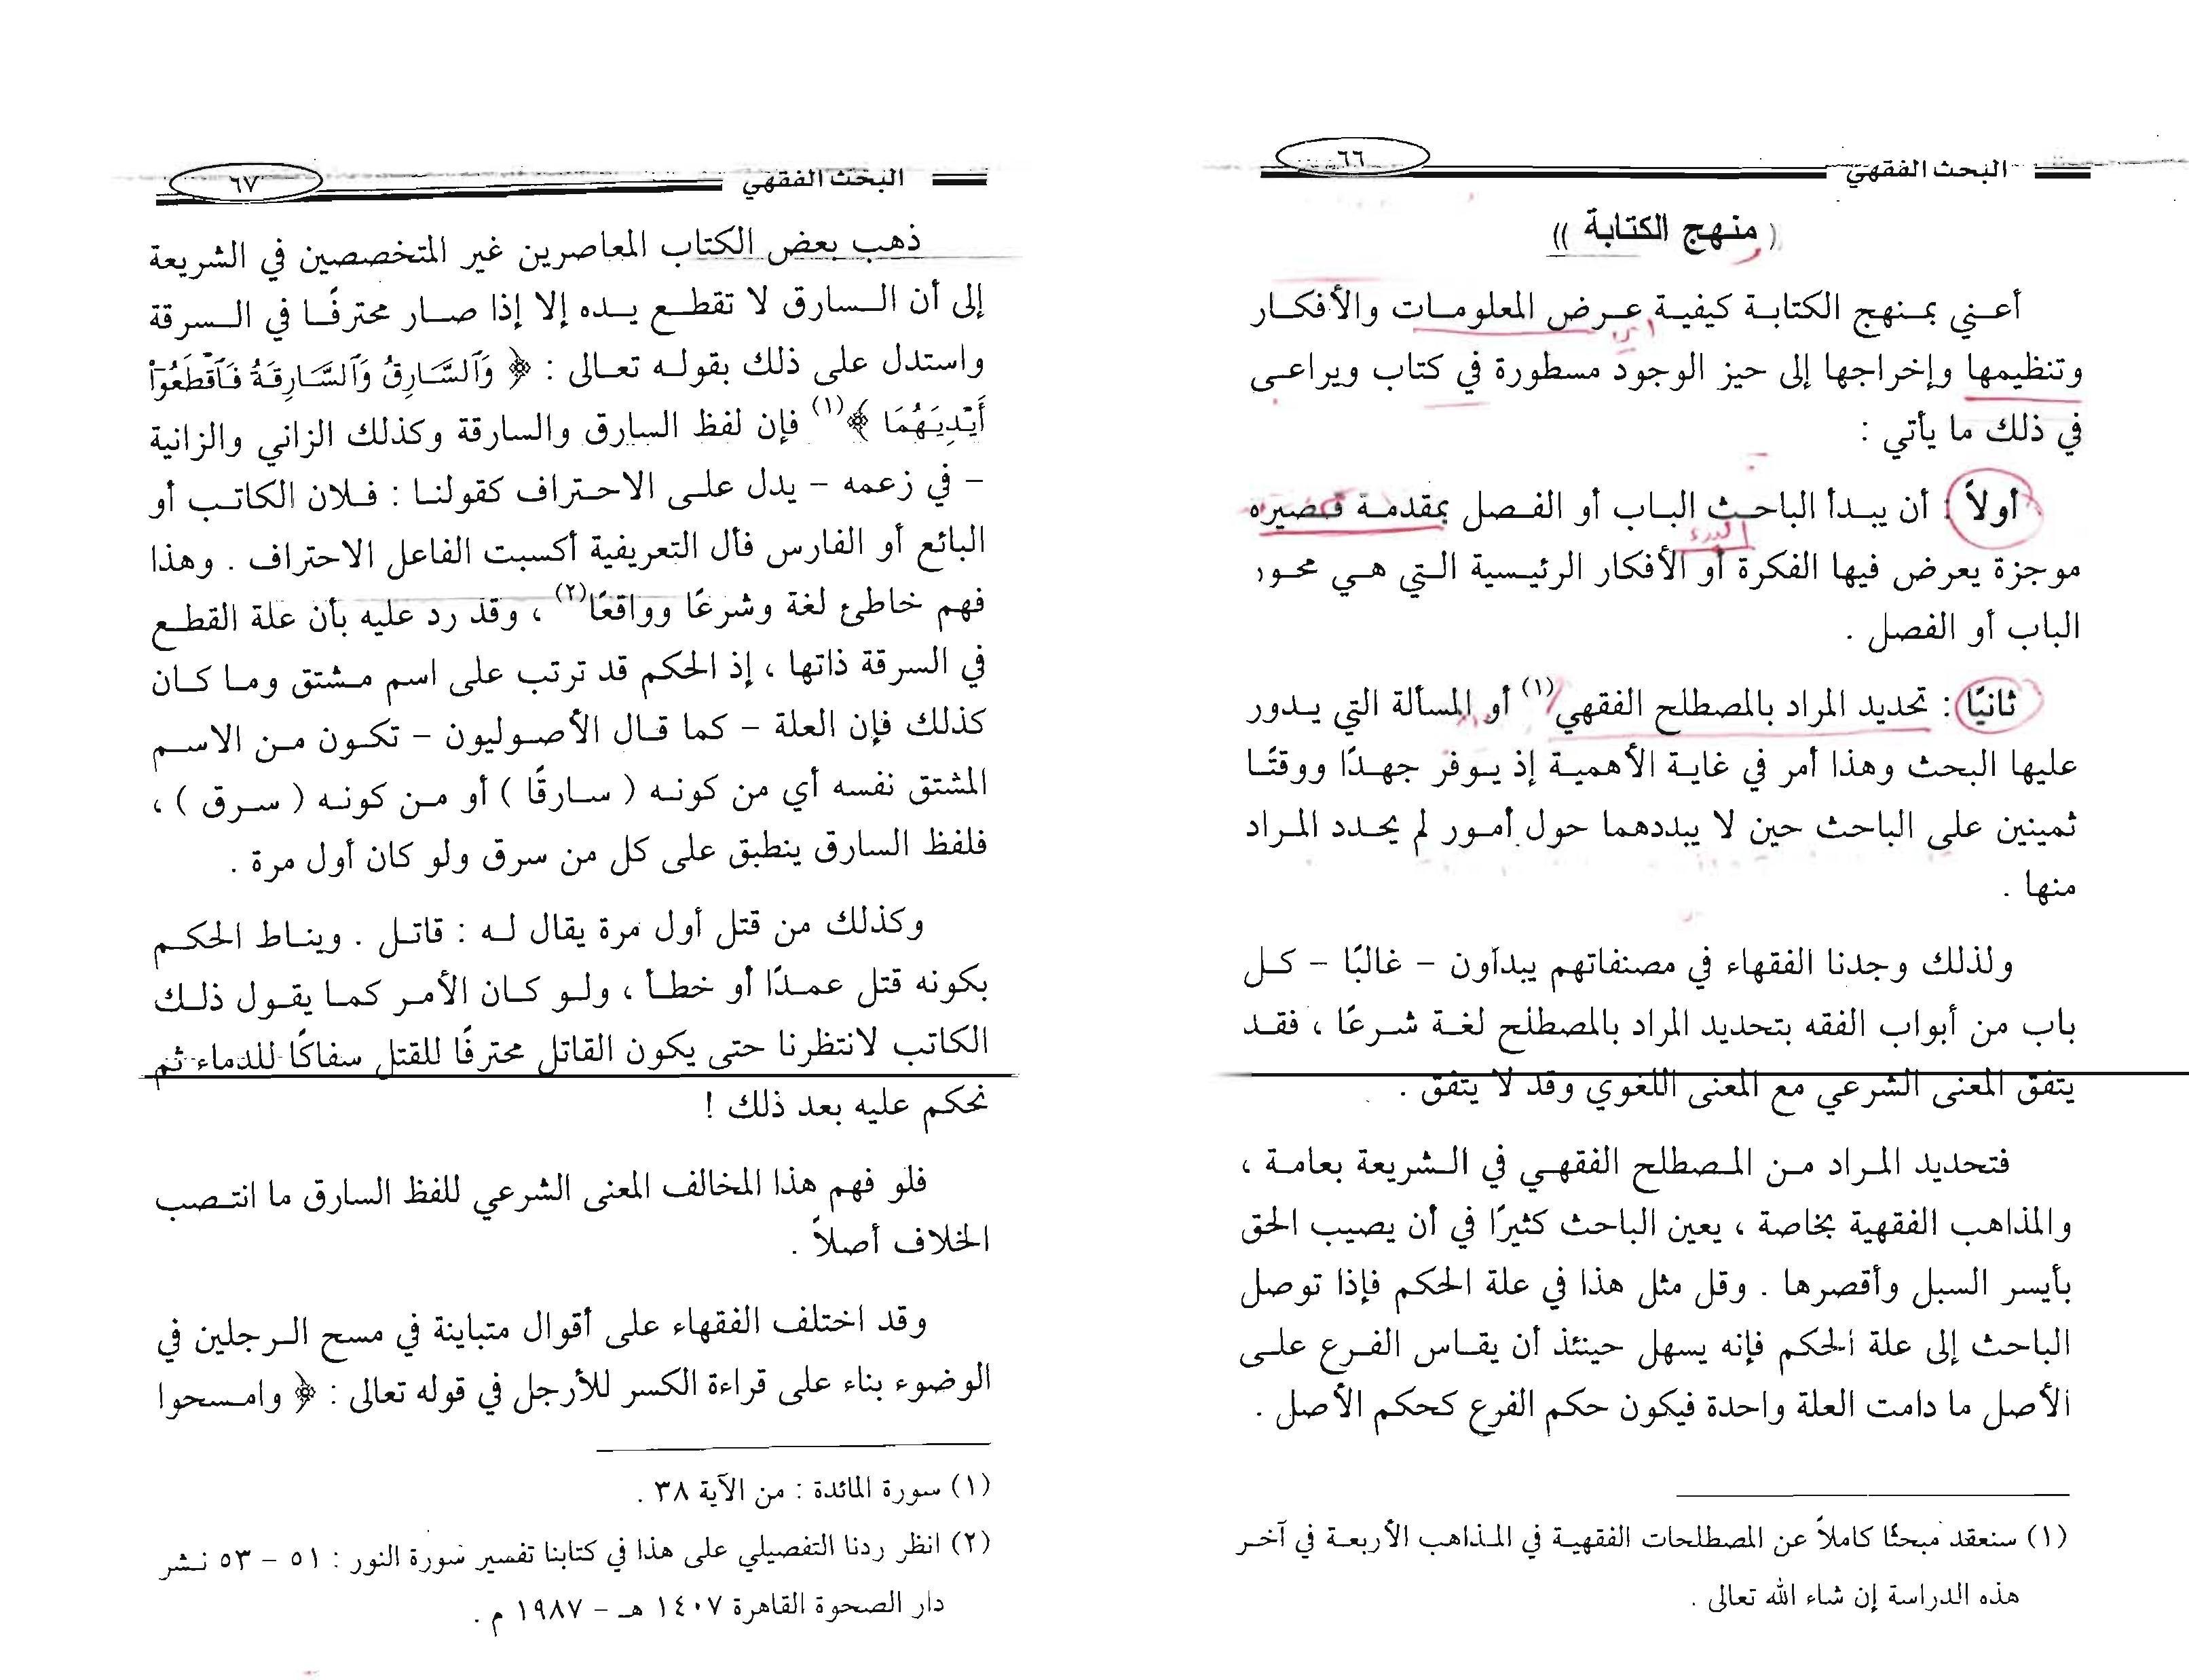 البحث الفقهي
٦٦
(( منهج الكتابة ))
أعني بمنهج الكتابة كيفية عرض المعلومات والأفكار
وتنظيمها وإخراجها إلى حيز الوجود مسطورة في كتاب ويراعى
في ذلك ما يأتي :
أولاً : أن يبدأ الباحث الباب أو الفصل بمقدمة قصيرة
موجزة يعرض فيها الفكرة أو الأفكار الرئيسية التي هي محور
الباب أو الفصل .
ثانيًا : تحديد المراد بالمصطلح الفقهي(١) أو المسألة التي يدور
عليها البحث وهذا أمر في غاية الأهمية إذ يوفر جهدًا ووقتًا
ثمينين على الباحث حين لا يبددهما حول أمور لم يحدد المراد
منها .
ولذلك وجدنا الفقهاء في مصنفاتهم يبدأون – غالبًا – كل
باب من أبواب الفقه بتحديد المراد بالمصطلح لغة شرعًا ، فقد
يتفق المعنى الشرعي مع المعنى اللغوي وقد لا يتفق .
فتحديد المراد من المصطلح الفقهي في الشريعة بعامة ،
والمذاهب الفقهية بخاصة ، يعين الباحث كثيرًا في أن يصيب الحق
بأيسر السبل وأقصرها . وقل مثل هذا في علة الحكم فإذا توصل
الباحث إلى علة الحكم فإنه يسهل حينئذ أن يقاس الفرع على
الأصل ما دامت العلة واحدة فيكون حكم الفرع كحكم الأصل .
(١) سنعقد مبحثًا كاملاً عن المصطلحات الفقهية في المذاهب الأربعة في آخر
هذه الدراسة إن شاء الله تعالى .
البحث الفقهي
٦٧
ذهب بعض الكتاب المعاصرين غير المتخصصين في الشريعة
إلى أن السارق لا تقطع يده إلا إذا صار محترفًا في السرقة
واستدل على ذلك بقوله تعالى : ﴿ وَٱلسَّارِقُ وَٱلسَّارِقَةُ فَٱقْطَعُوٓا۟
أَيْدِيَهُمَا ﴾(١) فإن لفظ السارق والسارقة وكذلك الزاني والزانية
– في زعمه – يدل على الاحتراف كقولنا : فلان الكاتب أو
البائع أو الفارس فأل التعريفية أكسبت الفاعل الاحتراف . وهذا
فهم خاطئ لغة وشرعًا وواقعًا(٢) ، وقد رد عليه بأن علة القطع
في السرقة ذاتها ، إذ الحكم قد ترتب على اسم مشتق وما كان
كذلك فإن العلة – كما قال الأصوليون – تكون من الاسم
المشتق نفسه أي من كونه ( سارقًا ) أو من كونه ( سرق ) ،
فلفظ السارق ينطبق على كل من سرق ولو كان أول مرة .
وكذلك من قتل أول مرة يقال له : قاتل . ويناط الحكم
بكونه قتل عمدًا أو خطأ ، ولو كان الأمر كما يقول ذلك
الكاتب لانتظرنا حتى يكون القاتل محترفًا للقتل سفاكًا للدماء ثم
نحكم عليه بعد ذلك !
فلو فهم هذا المخالف المعنى الشرعي للفظ السارق ما انتصب
الخلاف أصلاً .
وقد اختلف الفقهاء على أقوال متباينة في مسح الرجلين في
الوضوء بناء على قراءة الكسر للأرجل في قوله تعالى : ﴿ وامسحوا
(١) سورة المائدة : من الآية ٣٨ .
(٢) انظر ردنا التفصيلي على هذا في كتابنا تفسير سورة النور : ٥١ – ٥٣ نشر
دار الصحوة القاهرة ١٤٠٧ هـ – ١٩٨٧ م .